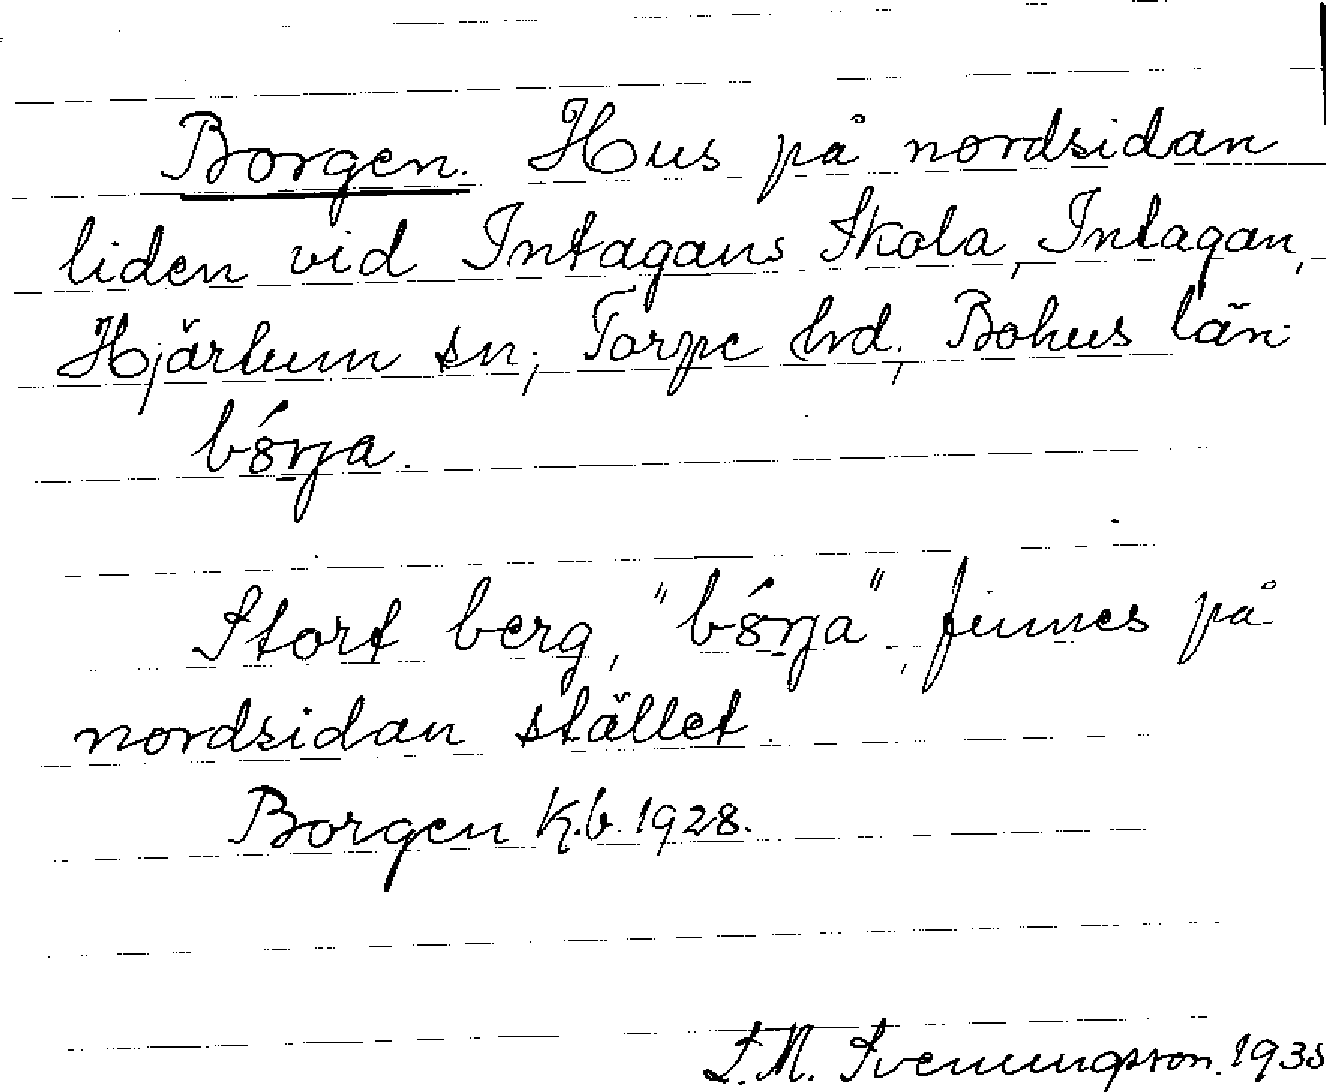 Borgen. Hus på nordsidan
liden vid Intagans Skola, Intagan,
Hjärtum sn; Torpe hd., Bohus län.
bǿŋa.
Stort berg, "bǿŋa", finnes på
nordsidan stället.
Borgen K.b. 1928.
S.M. Svenungsson. 193